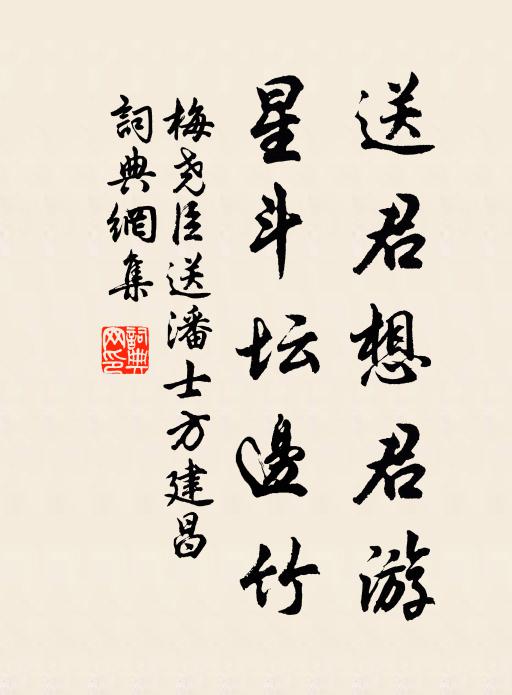 送君想君游
星斗坛邊竹
梅尧臣送潘士方建昌
詞典網集
詞典网印